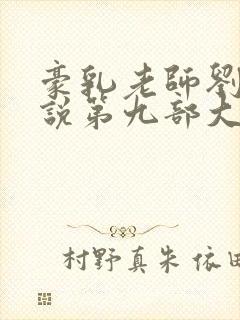 豪乳老師劉
說第九部大
村野真朱 依田